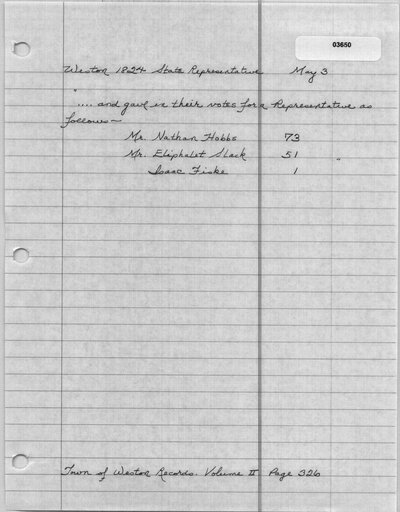 03650
Weston 1824 State Representative May 3
" .... and gave in their votes for a Representative as
follows—
Mr. Nathan Hobbs 73
Mr. Eliphalet Slack 51 "
Isaac Fiske 1
Town of Weston Records. Volume II Page 326